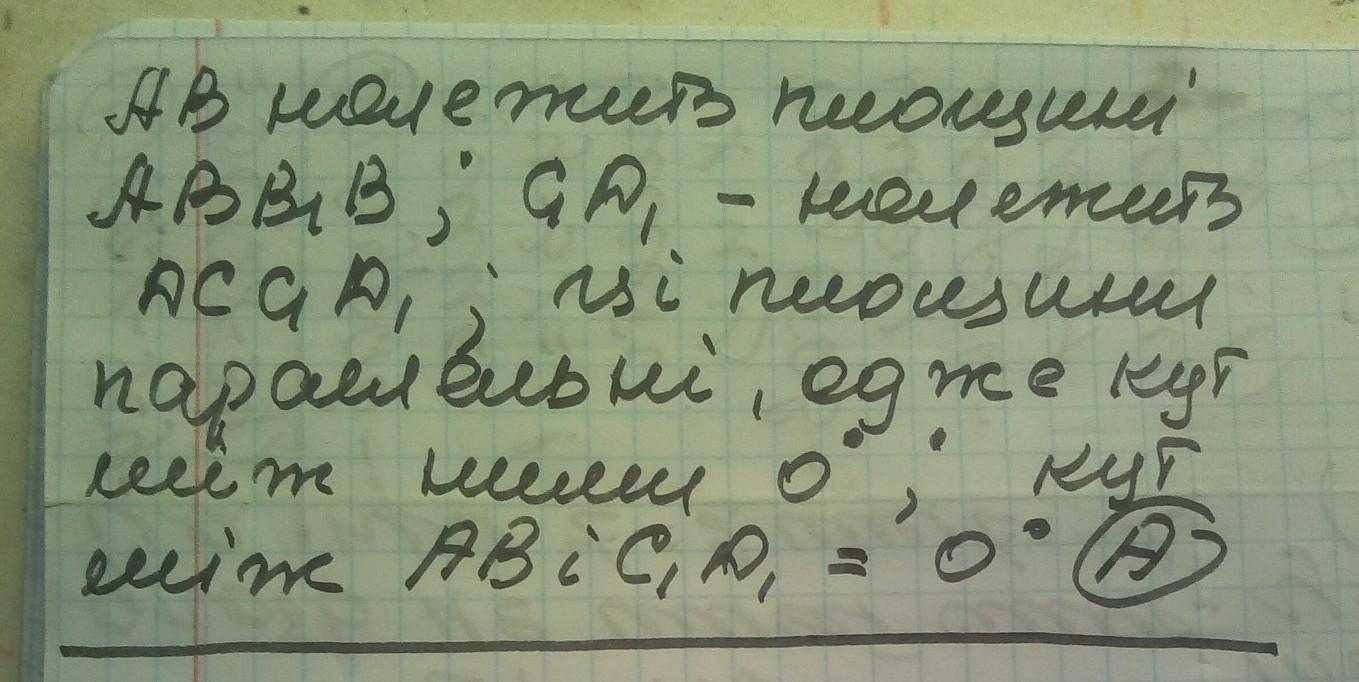 АВ належить площині
АВВ₁В; С₁D₁ - належить
DCC₁D₁; ці площини
паралельні, одже кут
між ними 0°; кут
між АВ і С₁D₁ = 0° А